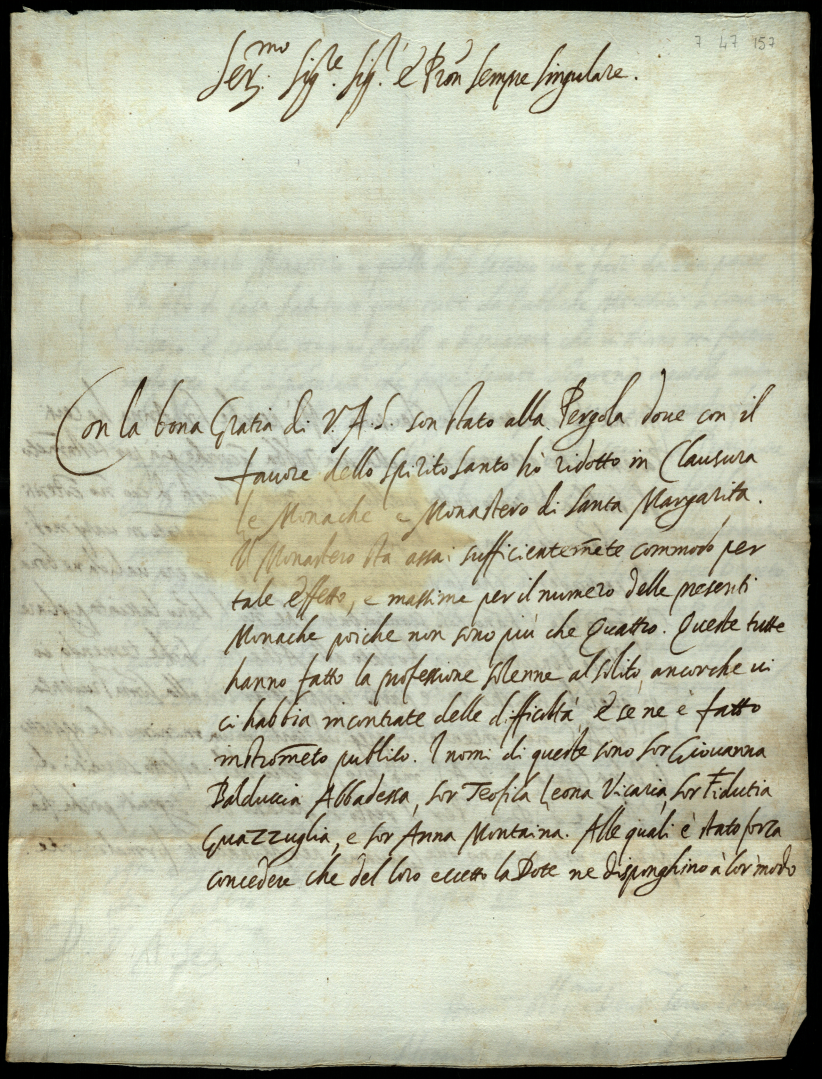 7 47 157
Ser.mo Sig.re Sig.r è Pron sempre singulare.
Con la bona Gratia di V.A.S. son stato alla Pergola doue con il
fauore dello spirito santo hò ridotto in Clausura
le Monache e Monastero di santa Margarita.
Il Monastero stà assai sufficientemẽte commodo per
tale effetto, e massime per il numero delle presenti
Monache poiche non sono più che Quattro. Queste tutte
hanno fatto la professione solenne al solito, ancorche ui
ci habbia incontrate delle difficoltà, è se ne è fatto
instromẽto publico. I nomi di queste sono sor Giouanna
Balduccia Abbadessa, sor Teofila Leona Vicaria, sor Fidutia
Guazzuglia, e sor Anna Montaina. Alle quali è stato forza
concedere che del loro eccetto la Dote ne disponghino à lor modo